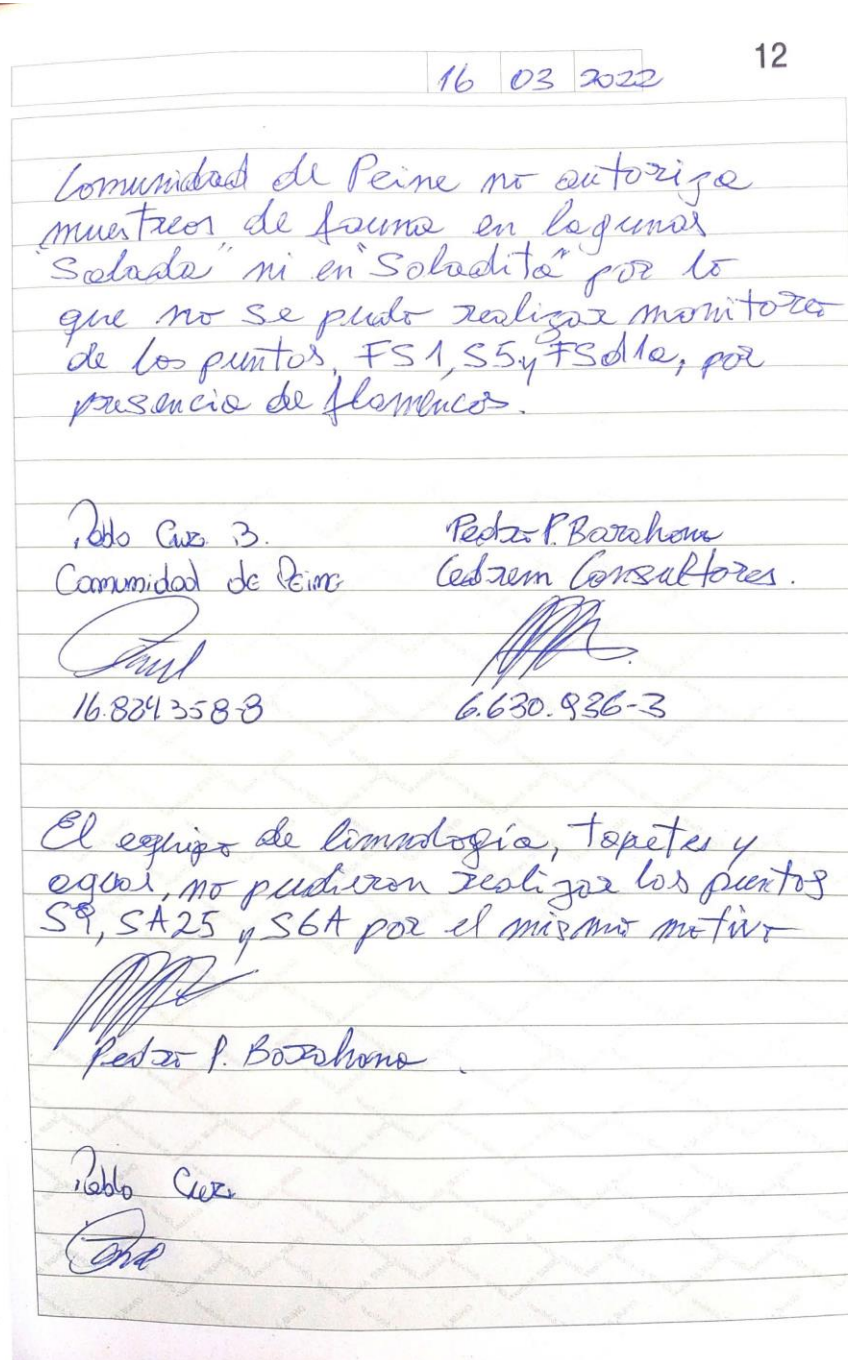 12
16 03 2022
Comunidad de Peine no autoriza
muestreos de fauna en lagunas
"Salada" ni en "Saladita" por lo
que no se pudo realizar monitoreo
de los puntos, FS1, S5 y FSd1a, por
presencia de flamencos.
Pablo Cruz B. Pedro P. Barahona
Comunidad de Peine Cedrem Consultores.
6.630.936-3
El equipo de limnología, tapetes y
aguas, no pudieron realizar los puntos
S9, SA25 y S6A por el mismo motivo
Pedro P. Barahona.
Pablo Cruz